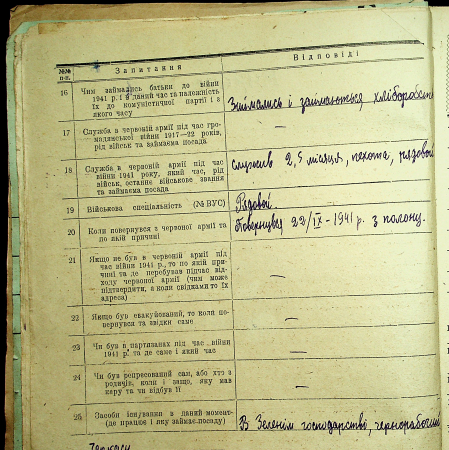 №№ п-п.
Запитання
Відповіді
16
Чим займались батьки до війни
1941 р. і в даний час та належність
їх до комуністичної партії і з
якого часу
Займались і займаються хліборобств
17
Служба в червоній армії під час гро-
мадянської війни 1917—22 років,
рід військ та займаєма посада
—
18
Служба в червоній армії під час
війни 1941 року, який час, рід
військ, останнє військове звання
та займаєма посада
служив 2,5 місяця, пехота, рядовой
19
Військова спеціальність (№ ВУС)
Рядовой
20
Коли повернувся з червоної армії та
по якій причині
Повернувся 22/IX - 1941 р. з полону.
21
Якщо не був в червоній армії під
час війни 1941 р., то по якій при-
чині та де перебував підчас від-
ходу червоної армії (чим може
підтвердити, а коли свідками то їх
адреса)
—
22
Якщо був евакуйований, то коли по-
вернувся та звідки саме
—
23
Чи був в партизанах під час війни
1941 р. та де саме і який час
—
24
Чи був репресований сам, або хто з
родичів, коли і защо, яку мав
кару та чи відбув її
—
25
Засоби існування в даний момент
(де працює і яку займає посаду)
В Зеленім господарстві, чернорабочий